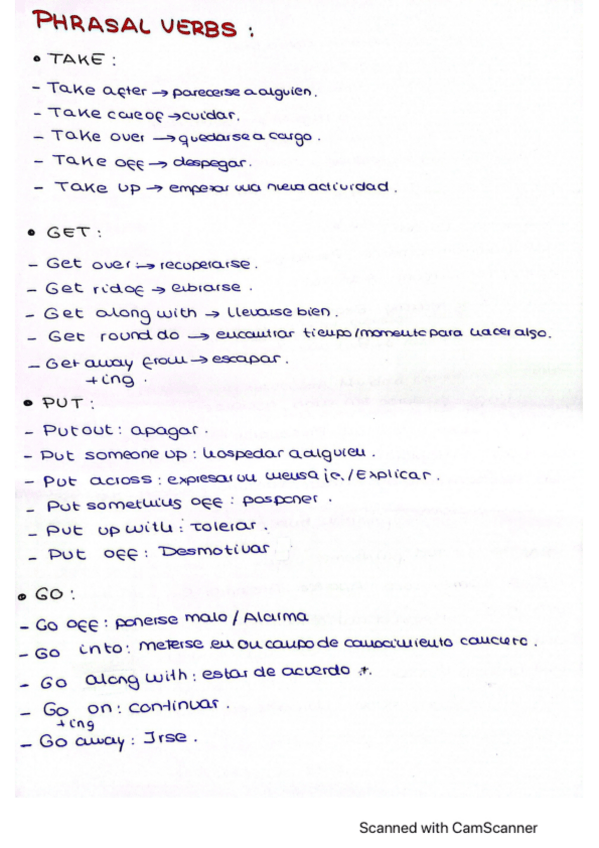 PHRASAL VERBS :
• TAKE :
- Take after → parecerse a alguien.
- Take care of → cuidar.
- Take over → quedarse a cargo.
- Take off → despegar.
- Take up → empezar una nueva actividad.
• GET :
- Get over → recuperarse.
- Get rid of → librarse.
- Get along with → llevarse bien.
- Get round do → encontrar tiempo/momento para hacer algo.
- Get away from → escapar.
+ing.
• PUT :
- Put out : apagar.
- Put someone up : hospedar a alguien.
- Put across : expresar un mensaje./Explicar.
- Put something off : posponer.
- Put up with : Tolerar.
- Put off : Desmotivar
• GO :
- Go off : ponerse malo / Alarma
- Go into : Meterse en un campo de conocimiento concreto.
- Go along with : estar de acuerdo +.
- Go on : continuar.
+ing
- Go away : Irse.
Scanned with CamScanner